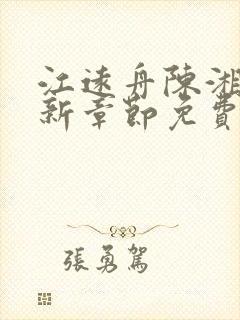 江遠舟陳湘
新章節免費
張勇駕